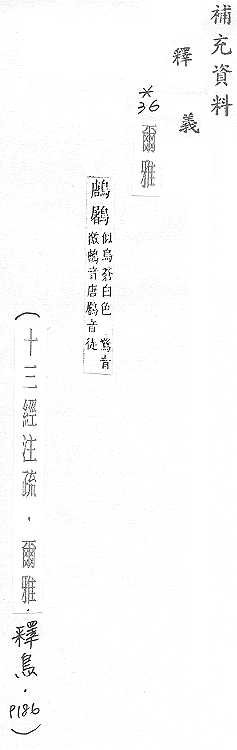 補充資料
釋義
*36 爾雅
鶶鷵
似烏蒼白色 鷩音
敝鶶音唐鷵音徒
(十三經注疏.爾雅.釋鳥.P186)